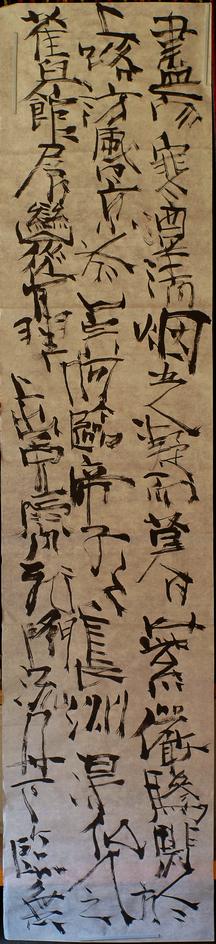 盡而寒潭清烟光凝而暮山紫儼驂騑於
上路訪風景於崇阿臨帝子之長洲得仙人之
舊館層巒聳翠上出重霄飛閣流丹下臨無